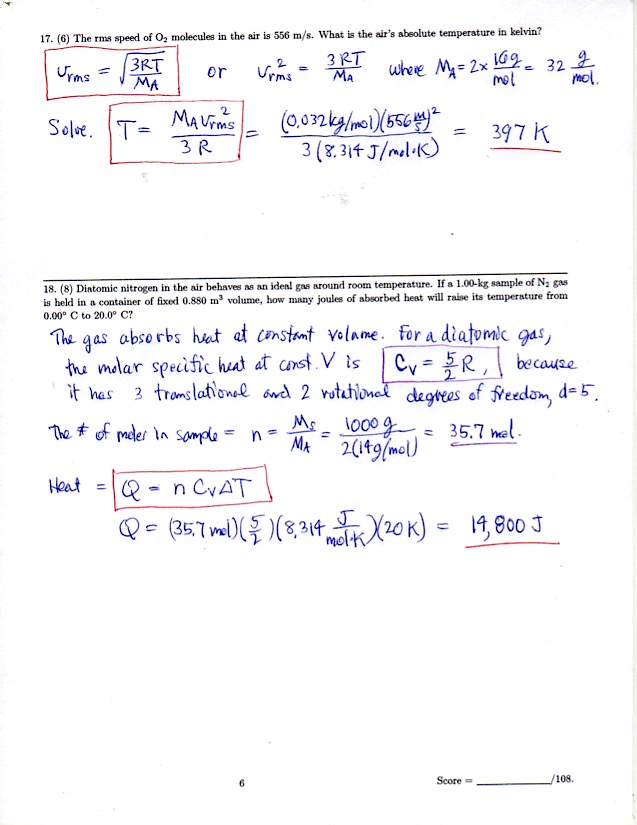 17. (6) The rms speed of O₂ molecules in the air is 556 m/s. What is the air's absolute temperature in kelvin?
v_rms = √(3RT/M_A) or v_rms² = 3RT/M_A where M_A = 2 × 16g/mol = 32 g/mol.
Solve. T = M_A v_rms²/3R = (0.032 kg/mol)(556 m/s)²/3(8.314 J/mol·K) = 397 K
18. (8) Diatomic nitrogen in the air behaves as an ideal gas around room temperature. If a 1.00-kg sample of N₂ gas
is held in a container of fixed 0.880 m³ volume, how many joules of absorbed heat will raise its temperature from
0.00° C to 20.0° C?
The gas absorbs heat at constant volume. For a diatomic gas,
the molar specific heat at const. V is C_V = 5/2 R, because
it has 3 translational and 2 rotational degrees of freedom, d=5.
The # of moles in sample = n = M_S/M_A = 1000 g/2(14g/mol) = 35.7 mol.
Heat = Q = n C_V ΔT
Q = (35.7 mol)(5/2)(8.314 J/mol·K)(20 K) = 14,800 J
6
Score = ________/108.